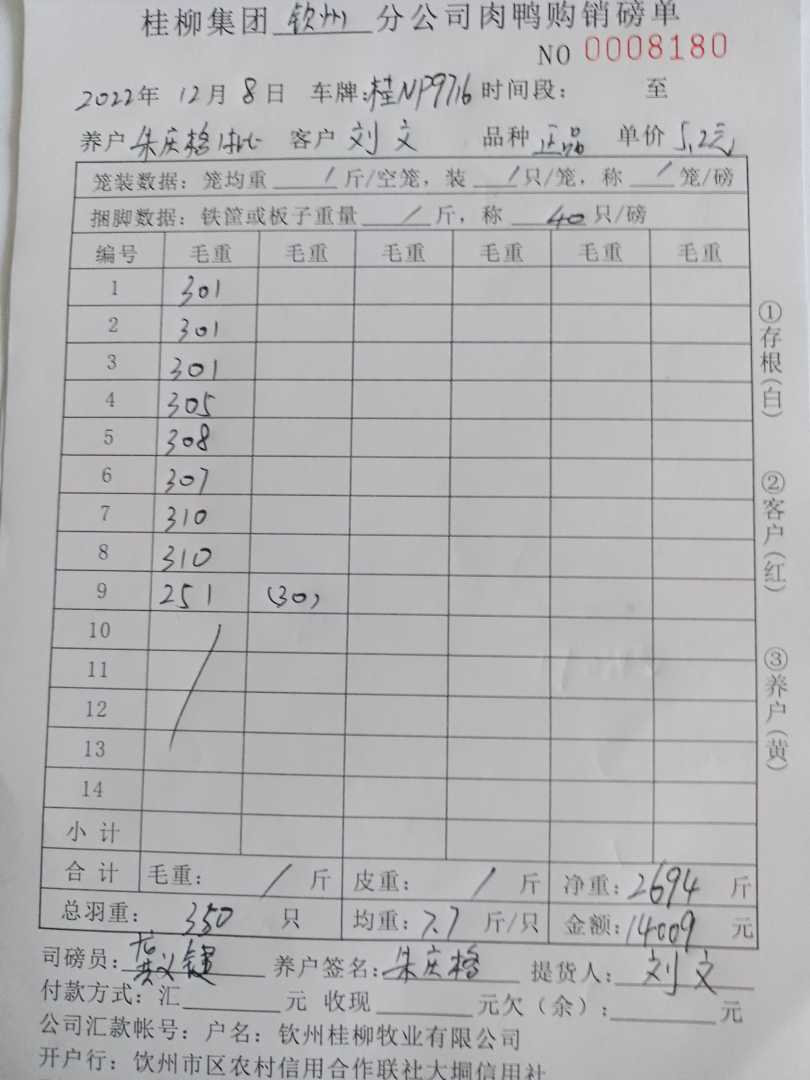 桂柳集团 钦州 分公司肉鸭购销磅单
NO 0008180
2022年 12月 8日 车牌:桂NP9716 时间段: 至
养户 朱庆格 客户 刘文 品种 正品 单价 5.2元
笼装数据: 笼均重 / 斤/空笼, 装 / 只/笼, 称 / 笼/磅
捆脚数据: 铁筐或板子重量 / 斤, 称 40 只/磅
编号 毛重 毛重 毛重 毛重 毛重 毛重
1 301
2 301
3 301
4 305
5 308
6 307
7 310
8 310
9 251 (30)
10
11
12
13
14
小计
合计 毛重: / 斤 皮重: / 斤 净重: 2694 斤
总羽重: 350 只 均重: 7.7 斤/只 金额: 14009 元
司磅员: 养户签名: 朱庆格 提货人: 刘文
付款方式: 汇 元 收现 元欠(余): 元
公司汇款帐号: 户名: 钦州桂柳牧业有限公司
开户行: 钦州市区农村信用合作联社大垌信用社
①存根(白)
②客户(红)
③养户(黄)